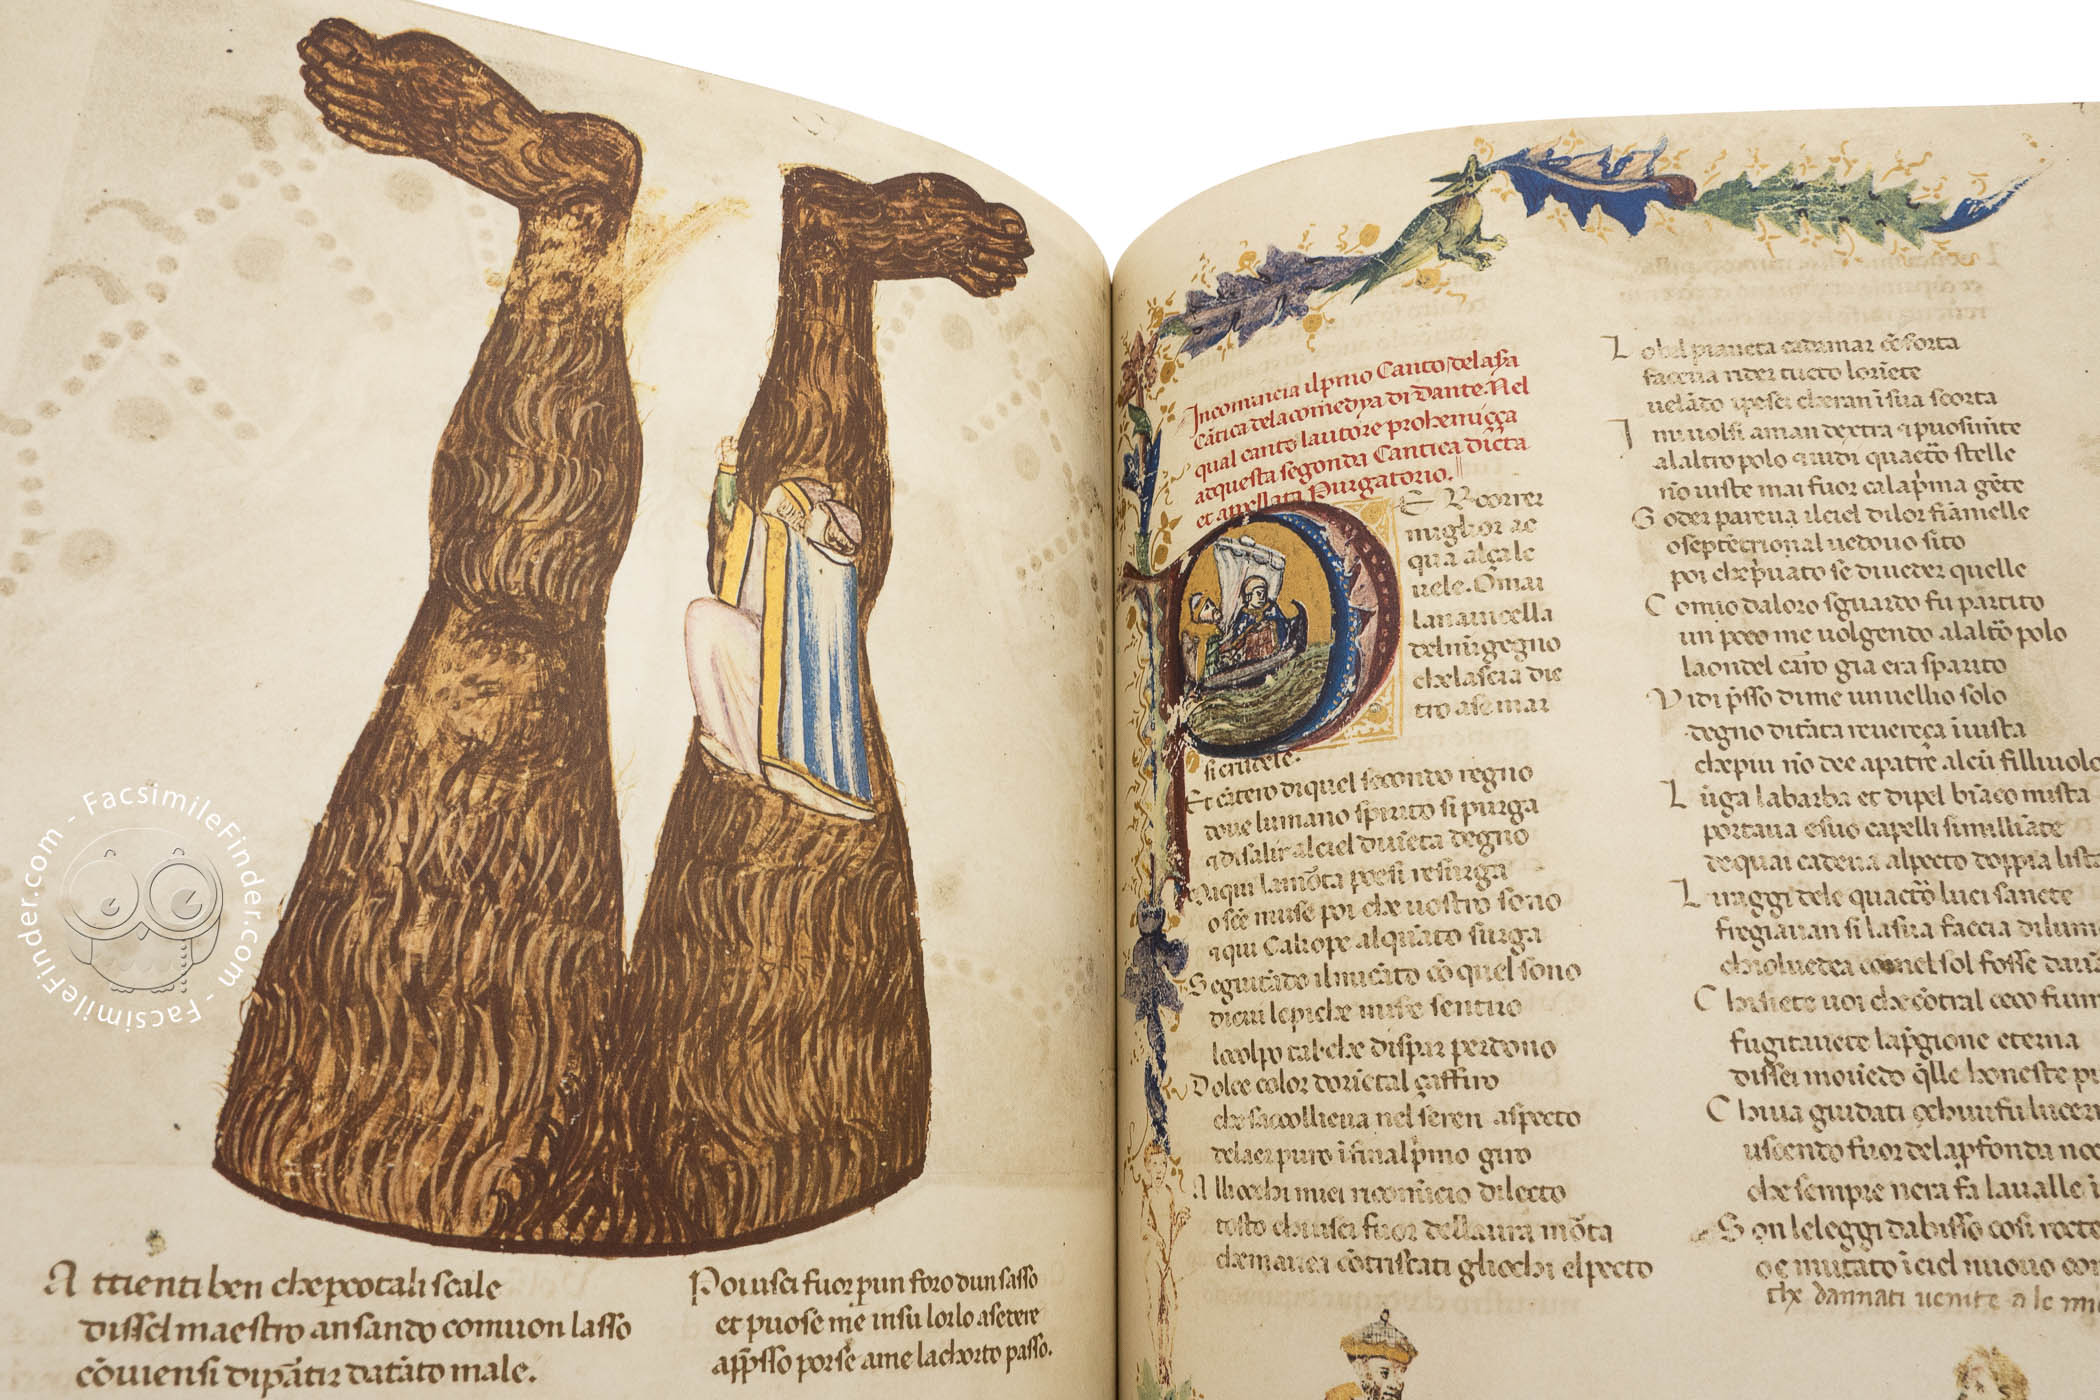 FacsimileFinder.com - FacsimileFinder.com - Facsimile
A ttienti ben che p cotali scale
disse l maestro ansando comuon lasso
cōuiensi dipārtir datāto male.
Poi usci fuor p un foro dun sasso
et puose me insu lorlo a sedere
app̄sso porse ame lachorto passo.
Incomincia il p̄mo Canto dela s̄a
Cātica dela comedya di Dante. Nel
qual canto lautore prohemiçça
adquesta segonda Cantica dicta
et apellata Purgatorio.
P Er correr
miglior ac
qua alçale
uele. Omai
la nauicella
del mī gegno
che lascia die
tro ase mar
si crudele.
Et cātero di quel secondo regno
doue lumano spirito si purga
⁊ di salir al ciel diuēta degno
Ma qui la mōta poesi resurga
o scē muse poi che uostro sono
⁊ qui Caliope alquāto surga
Seguitādo il mi cāto cō quel sono
di cui le piche misere sentiro
lo colpo tal che disperar perdono
Dolce color dorīetal çaffiro
che saccoglieua nel seren aspecto
del aer puro ī fin al p̄mo giro
A lliocchi miei ricomīcio dilecto
tosto chiusci fuor dellaura morta
che mauea cōtristati gliocchi el pecto
L o bel pianeta cadamar cōforta
faceua rider tucto lorīete
uelādo i pesci cheran ī sua scorta
I mi uolsi aman dextra ⁊ puosi mīte
alaltro polo ⁊ uidi quactō stelle
nō uiste mai fuor cala p̄ma gēte
G oder pareua il ciel di lor fiāmelle
o septētrional uedouo sito
poi che p̄uato se di ueder quelle
C omio daloro sguardo fu partito
un poco me uolgendo alaltō polo
laondel cārro gia era sparito
V idi p̄sso di me un uellio solo
degno di tāta reuerēça ī uista
che piu nō dee a patre alcū filliuolo
L ūga la barba et di pel biāco mista
portaua e suo capelli simillīate
de quai cadeua al pecto doppia lista
L i raggi dele quactō luci sancte
fregiauan si la sua faccia di lume
chio l uedea come l sol fosse dauā
C hi siete uoi che cōtral ceco fium
fugitauete la p̄gione eterna
dissei mouēdo q̄lle honeste pi
C hi ua guidati o chi ui fu lucer
uscendo fuor dela p̄fonda noc
che sempre nera fa la ualle ī
S on le leggi dabisso cosi rocte
o e mutato ī ciel nuouo con
che dannati uenite a le mi